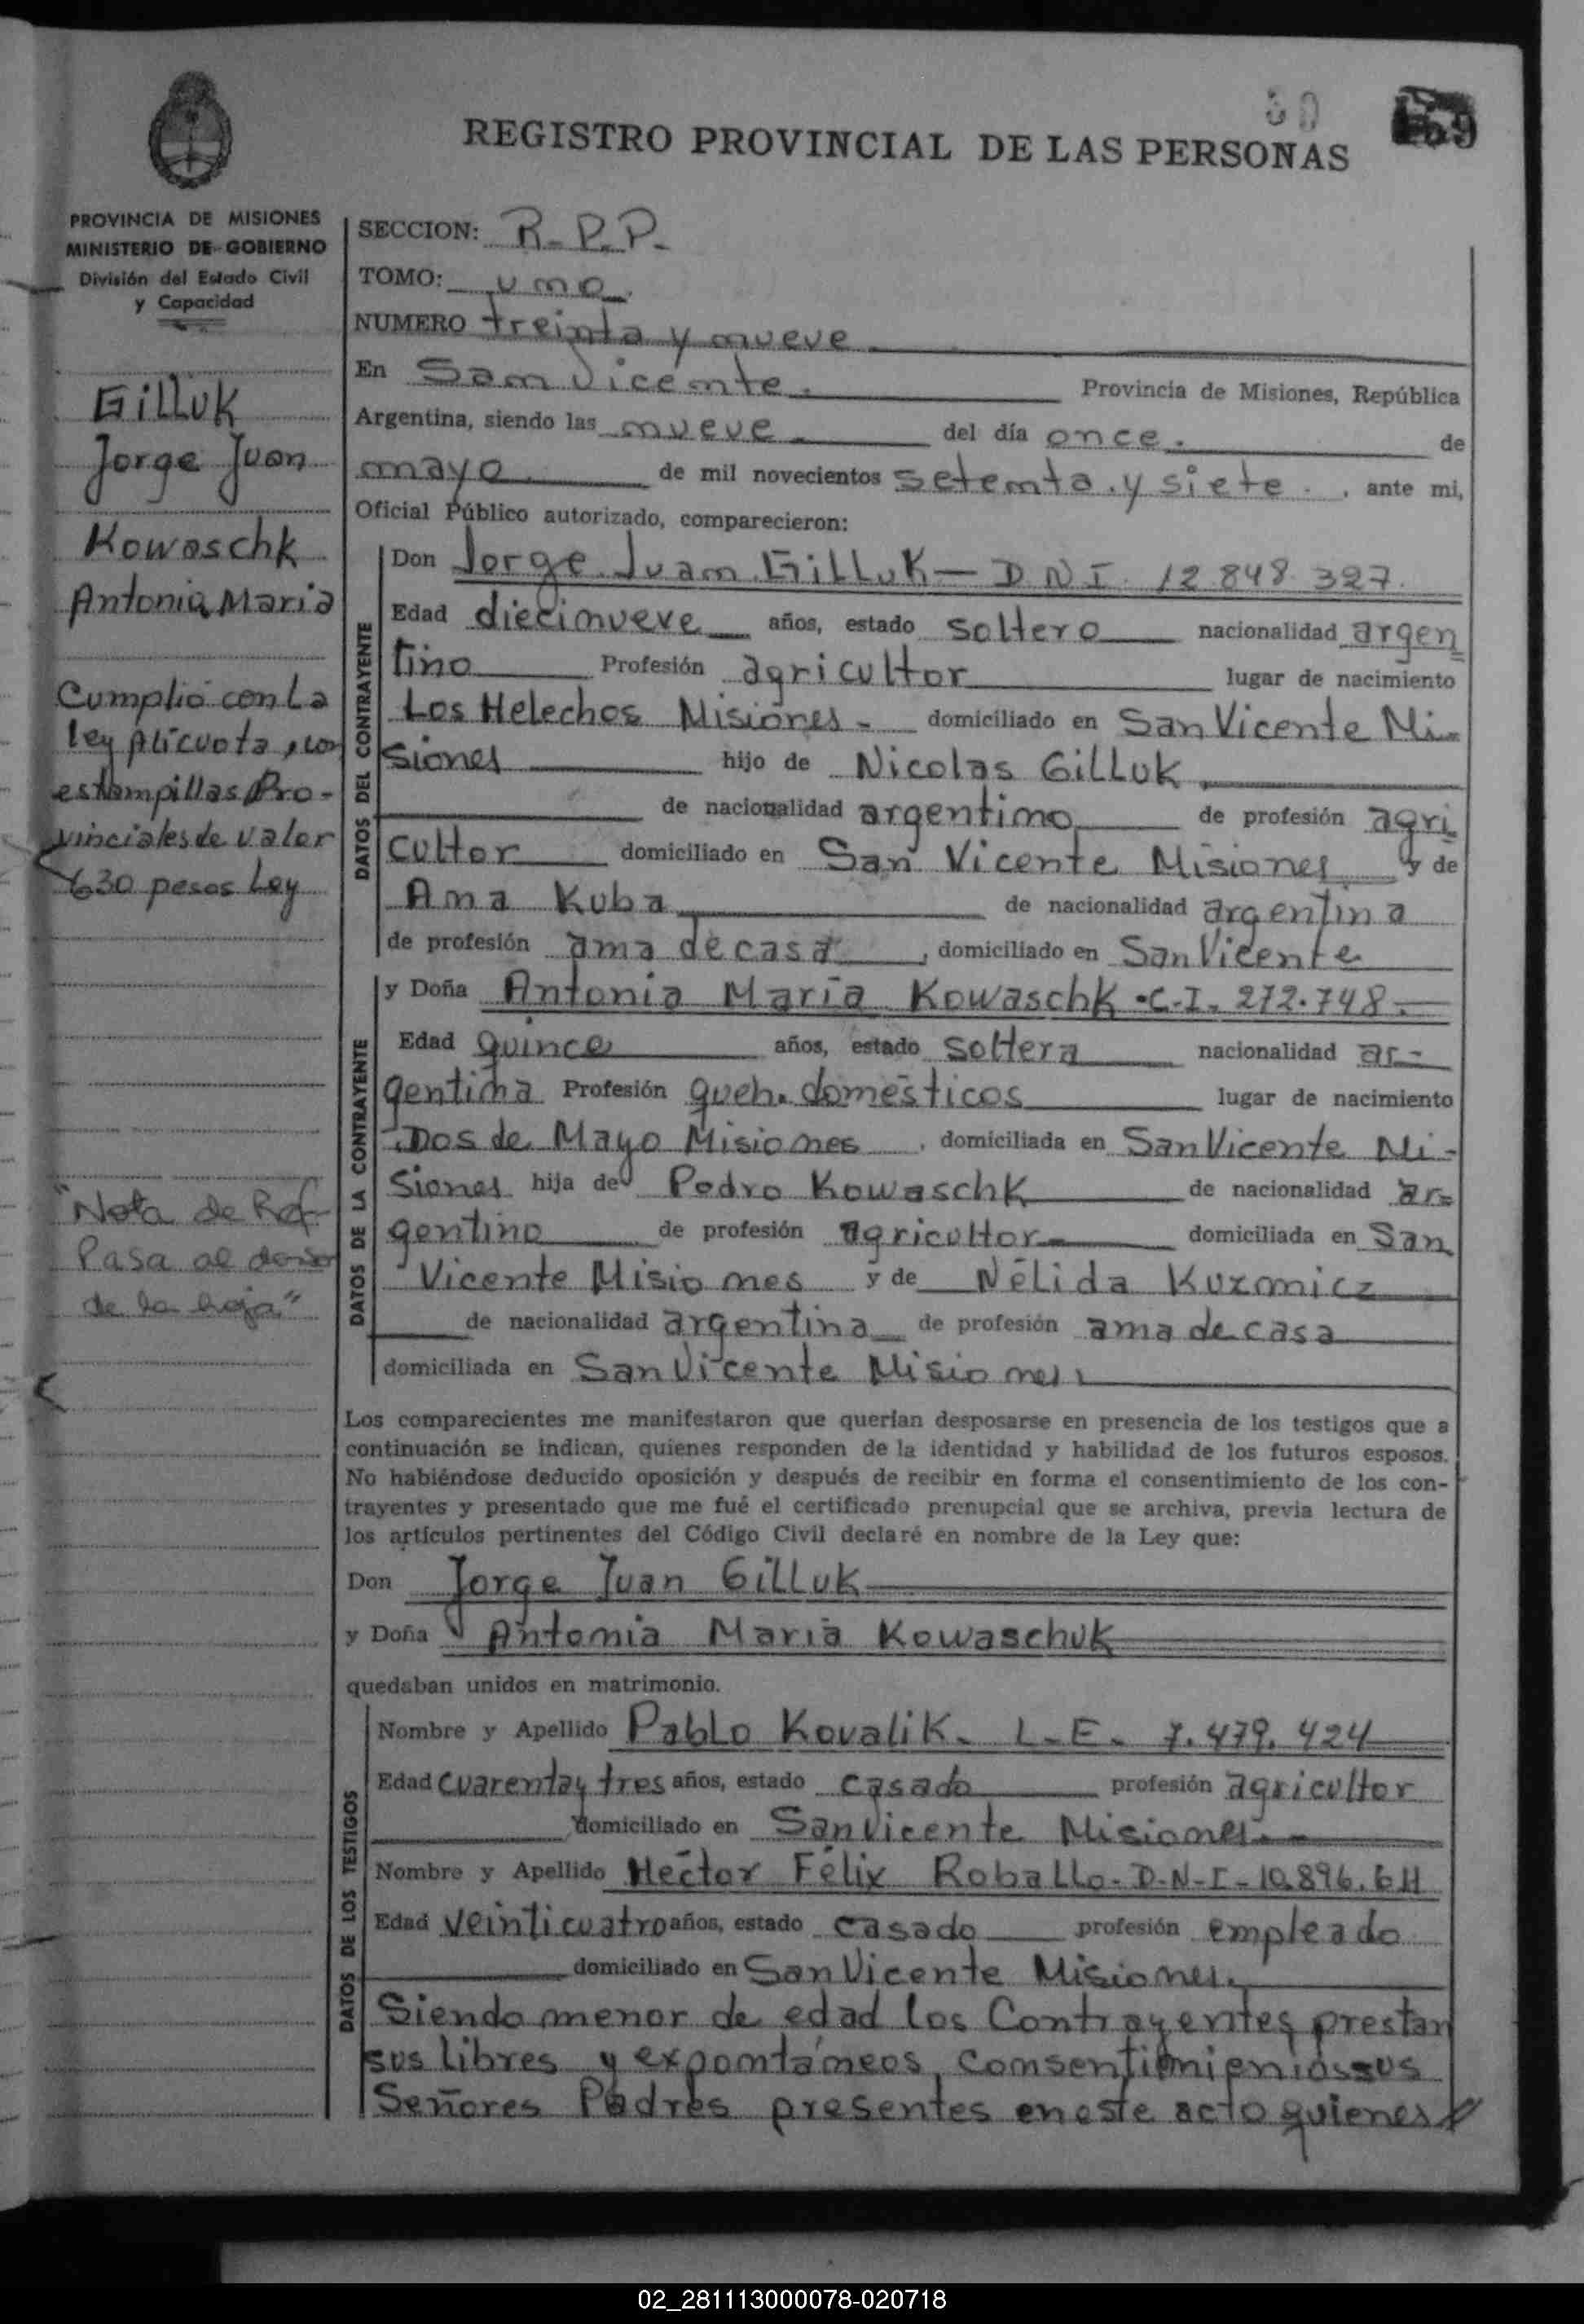 REGISTRO PROVINCIAL DE LAS PERSONAS
PROVINCIA DE MISIONES
MINISTERIO DE GOBIERNO
División del Estado Civil
y Capacidad
Gilluk
Jorge Juan
Kowaschk
Antonia Maria
Cumplió con La
Ley Alicuota, con
estampillas Pro-
vinciales de valor
630 pesos Ley
"Nota de Ref.
Pasa al dorso
de la hoja"
SECCION: R.P.P.
TOMO: uno.
NUMERO treinta y nueve
En San Vicente. Provincia de Misiones, República
Argentina, siendo las nueve. del día once. de
mayo de mil novecientos setenta y siete. , ante mi,
Oficial Público autorizado, comparecieron:
DATOS DEL CONTRAYENTE
Don Jorge Juan Gilluk — DNI. 12 848 327.
Edad diecinueve años, estado soltero nacionalidad argen
tino Profesión agricultor lugar de nacimiento
Los Helechos Misiones - domiciliado en San Vicente Mi-
siones hijo de Nicolas Gilluk
de nacionalidad argentino de profesión agri
cultor domiciliado en San Vicente Misiones y de
Ana Kuba de nacionalidad argentina
de profesión ama de casa , domiciliado en San Vicente
DATOS DE LA CONTRAYENTE
y Doña Antonia María Kowaschk .C.I. 272.748.
Edad quince años, estado soltera nacionalidad ar-
gentina Profesión queh. domésticos lugar de nacimiento
Dos de Mayo Misiones , domiciliada en San Vicente Mi-
siones hija de Pedro Kowaschk de nacionalidad ar-
gentino de profesión agricultor domiciliada en San
Vicente Misiones y de Nélida Kuzmicz
de nacionalidad argentina de profesión ama de casa
domiciliada en San Vicente Misiones
Los comparecientes me manifestaron que querían desposarse en presencia de los testigos que a
continuación se indican, quienes responden de la identidad y habilidad de los futuros esposos.
No habiéndose deducido oposición y después de recibir en forma el consentimiento de los con-
trayentes y presentado que me fué el certificado prenupcial que se archiva, previa lectura de
los artículos pertinentes del Código Civil declaré en nombre de la Ley que:
Don Jorge Juan Gilluk
y Doña Antonia Maria Kowaschuk
quedaban unidos en matrimonio.
DATOS DE LOS TESTIGOS
Nombre y Apellido Pablo Kovalik. L.E. 7.479.424
Edad cuarenta y tres años, estado casado profesión agricultor
domiciliado en San Vicente Misiones.
Nombre y Apellido Héctor Félix Roballo. D.N.I-
Edad veinticuatro años, estado casado profesión empleado
domiciliado en San Vicente Misiones.
Siendo menor de edad los Contrayentes prestan
sus libres y expontáneos sus
Señores Padres presentes en este acto quienes //
02_281113000078-020718